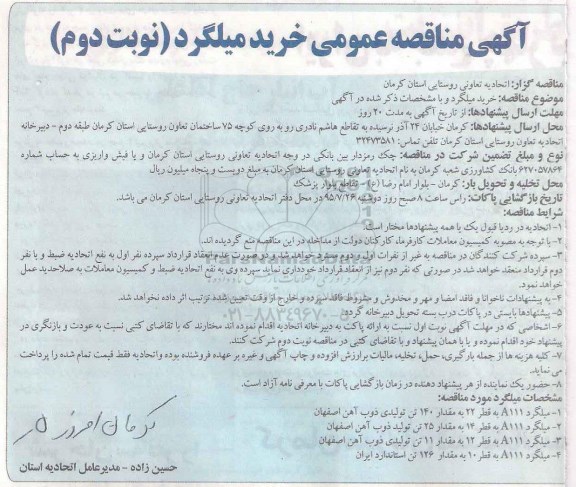 آگهی مناقصه عمومی خرید میلگرد (نوبت دوم)
مناقصه گزار: اتحادیه تعاونی روستایی استان کرمان
موضوع مناقصه: خرید میلگرد و با مشخصات ذکر شده در آگهی
مهلت ارسال پیشنهادها: از تاریخ آگهی به مدت ۲۰ روز
محل ارسال پیشنهادها: کرمان خیابان ۲۴ آذر نرسیده به تقاطع هاشم نادری رو به روی کوچه ۷۵ ساختمان تعاون روستایی استان کرمان طبقه دوم - دبیرخانه
اتحادیه تعاون روستایی استان کرمان تلفن تماس: ۳۲۴۷۳۵۸۱
نوع و مبلغ تضمین شرکت در مناقصه: چک رمزدار بین بانکی در وجه اتحادیه تعاونی روستایی استان کرمان و یا فیش واریزی به حساب شماره
۶۲۷۰۵۷۸۶۴ بانک کشاورزی شعبه کرمان به نام اتحادیه تعاونی روستایی استان کرمان به مبلغ دویست و پنجاه میلیون ریال
محل تخلیه و تحویل بار: کرمان - بلوار امام رضا (ع) - تقاطع بلوار پزشک
تاریخ بازگشایی پاکات: راس ساعت ۸ صبح روز دوشنبه ۹۵/۷/۲۶ در محل دفتر اتحادیه تعاونی روستایی استان کرمان می باشد.
شرایط مناقصه:
۱- اتحادیه در رد یا قبول یک یا همه پیشنهادها مختار است.
۲- با توجه به مصوبه کمیسیون معاملات کارفرما، کارکنان دولت از مداخله در این مناقصه منع گردیده اند.
۳- سپرده شرکت کنندگان در مناقصه به غیر از نفرات اول و دوم مسترد خواهد شد و در صورت عدم انعقاد قرارداد سپرده نفر اول به نفع اتحادیه ضبط و با نفر
دوم قرارداد منعقد خواهد شد در صورتی که نفر دوم نیز از انعقاد قرارداد خودداری نماید سپرده وی به نفع اتحادیه ضبط و کمیسیون معاملات به صلاحدید عمل
خواهد نمود.
۴- به پیشنهادات ناخوانا و فاقد امضا و مهر و مخدوش و مشروط فاقد سپرده و خارج از وقت تعیین شده ترتیب اثر داده نخواهد شد.
۵- پیشنهادها بایستی در پاکات درب بسته تحویل دبیرخانه گردد.
۶- اشخاصی که در مهلت آگهی نوبت اول نسبت به ارائه پاکت به دبیرخانه اتحادیه اقدام نموده اند مختارند که با تقاضای کتبی نسبت به عودت و بازنگری در
پیشنهاد خود اقدام نموده و یا با همان پیشنهاد و با تقاضای کتبی در مناقصه نوبت دوم شرکت کنند.
۷- کلیه هزینه ها از جمله بارگیری، حمل، تخلیه، مالیات برارزش افزوده و چاپ آگهی و غیره بر عهده فروشنده بوده و اتحادیه فقط قیمت تمام شده را پرداخت
می نماید.
۸- حضور یک نماینده از هر پیشنهاد دهنده در زمان بازگشایی پاکات با معرفی نامه آزاد است.
مشخصات میلگرد مورد مناقصه:
۱- میلگرد A111 به قطر ۲۲ به مقدار ۱۴۰ تن تولیدی ذوب آهن اصفهان
۲- میلگرد A111 به قطر ۱۴ به مقدار ۲۵ تن تولیدی ذوب آهن اصفهان
۳- میلگرد A111 به قطر ۱۲ به مقدار ۱۱ تن تولیدی ذوب آهن اصفهان
۴- میلگرد A111 به قطر ۱۰ به مقدار ۱۲۶ تن استاندارد ایران
کرمان امروز
حسین زاده - مدیرعامل اتحادیه استان
۰۲۱-۸۸۳۴۹۶۷۰